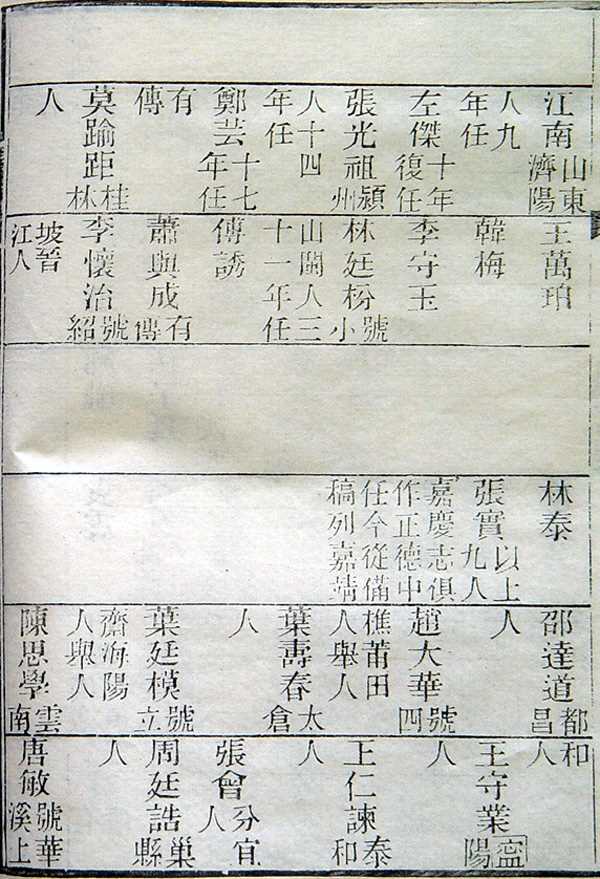 江南山東濟陽
人九年任
左傑十年復任
張光祖潁州
人十四年任
鄭芸十七年任
有傳
莫踰距桂林
人
王萬珀
韓梅
李守玉
林廷枌號小
山閩人三十一年任
傅誘
蕭與成有傳
李懷治號紹
坡晉江人
林泰
張實以上九人
嘉慶志俱
作正德中
任今從備
稿列嘉靖
邵達道都昌
人
趙大華號四
樵莆田人舉人
葉壽春太倉
人
葉廷模號立
齋海陽人舉人
陳思學雲南
和人
王守業陽
人
王仁諫泰和
人
張會分宜人
周廷誥巢縣
人
唐敏號華溪上